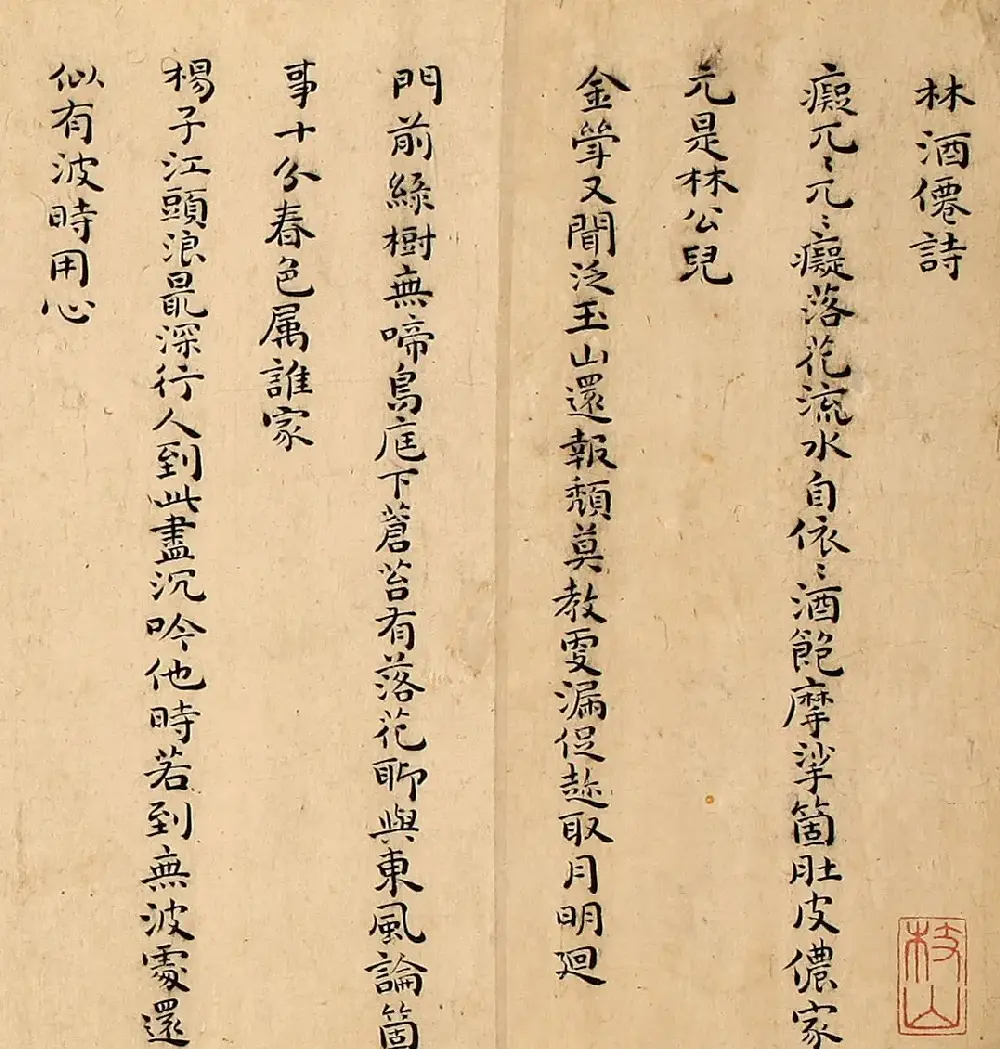 林酒僊詩
癡兀〻兀〻癡落花流水自依〻酒飽摩挲箇肚皮儂家
元是林公兒
金斝又聞泛玉山還報頹莫教更漏促趂取月明迴
門前綠樹無啼鳥庭下蒼苔有落花聊與東風論箇
事十分春色属誰家
楊子江頭浪最深行人到此盡沉吟他時若到無波處還
似有波時用心
枝山